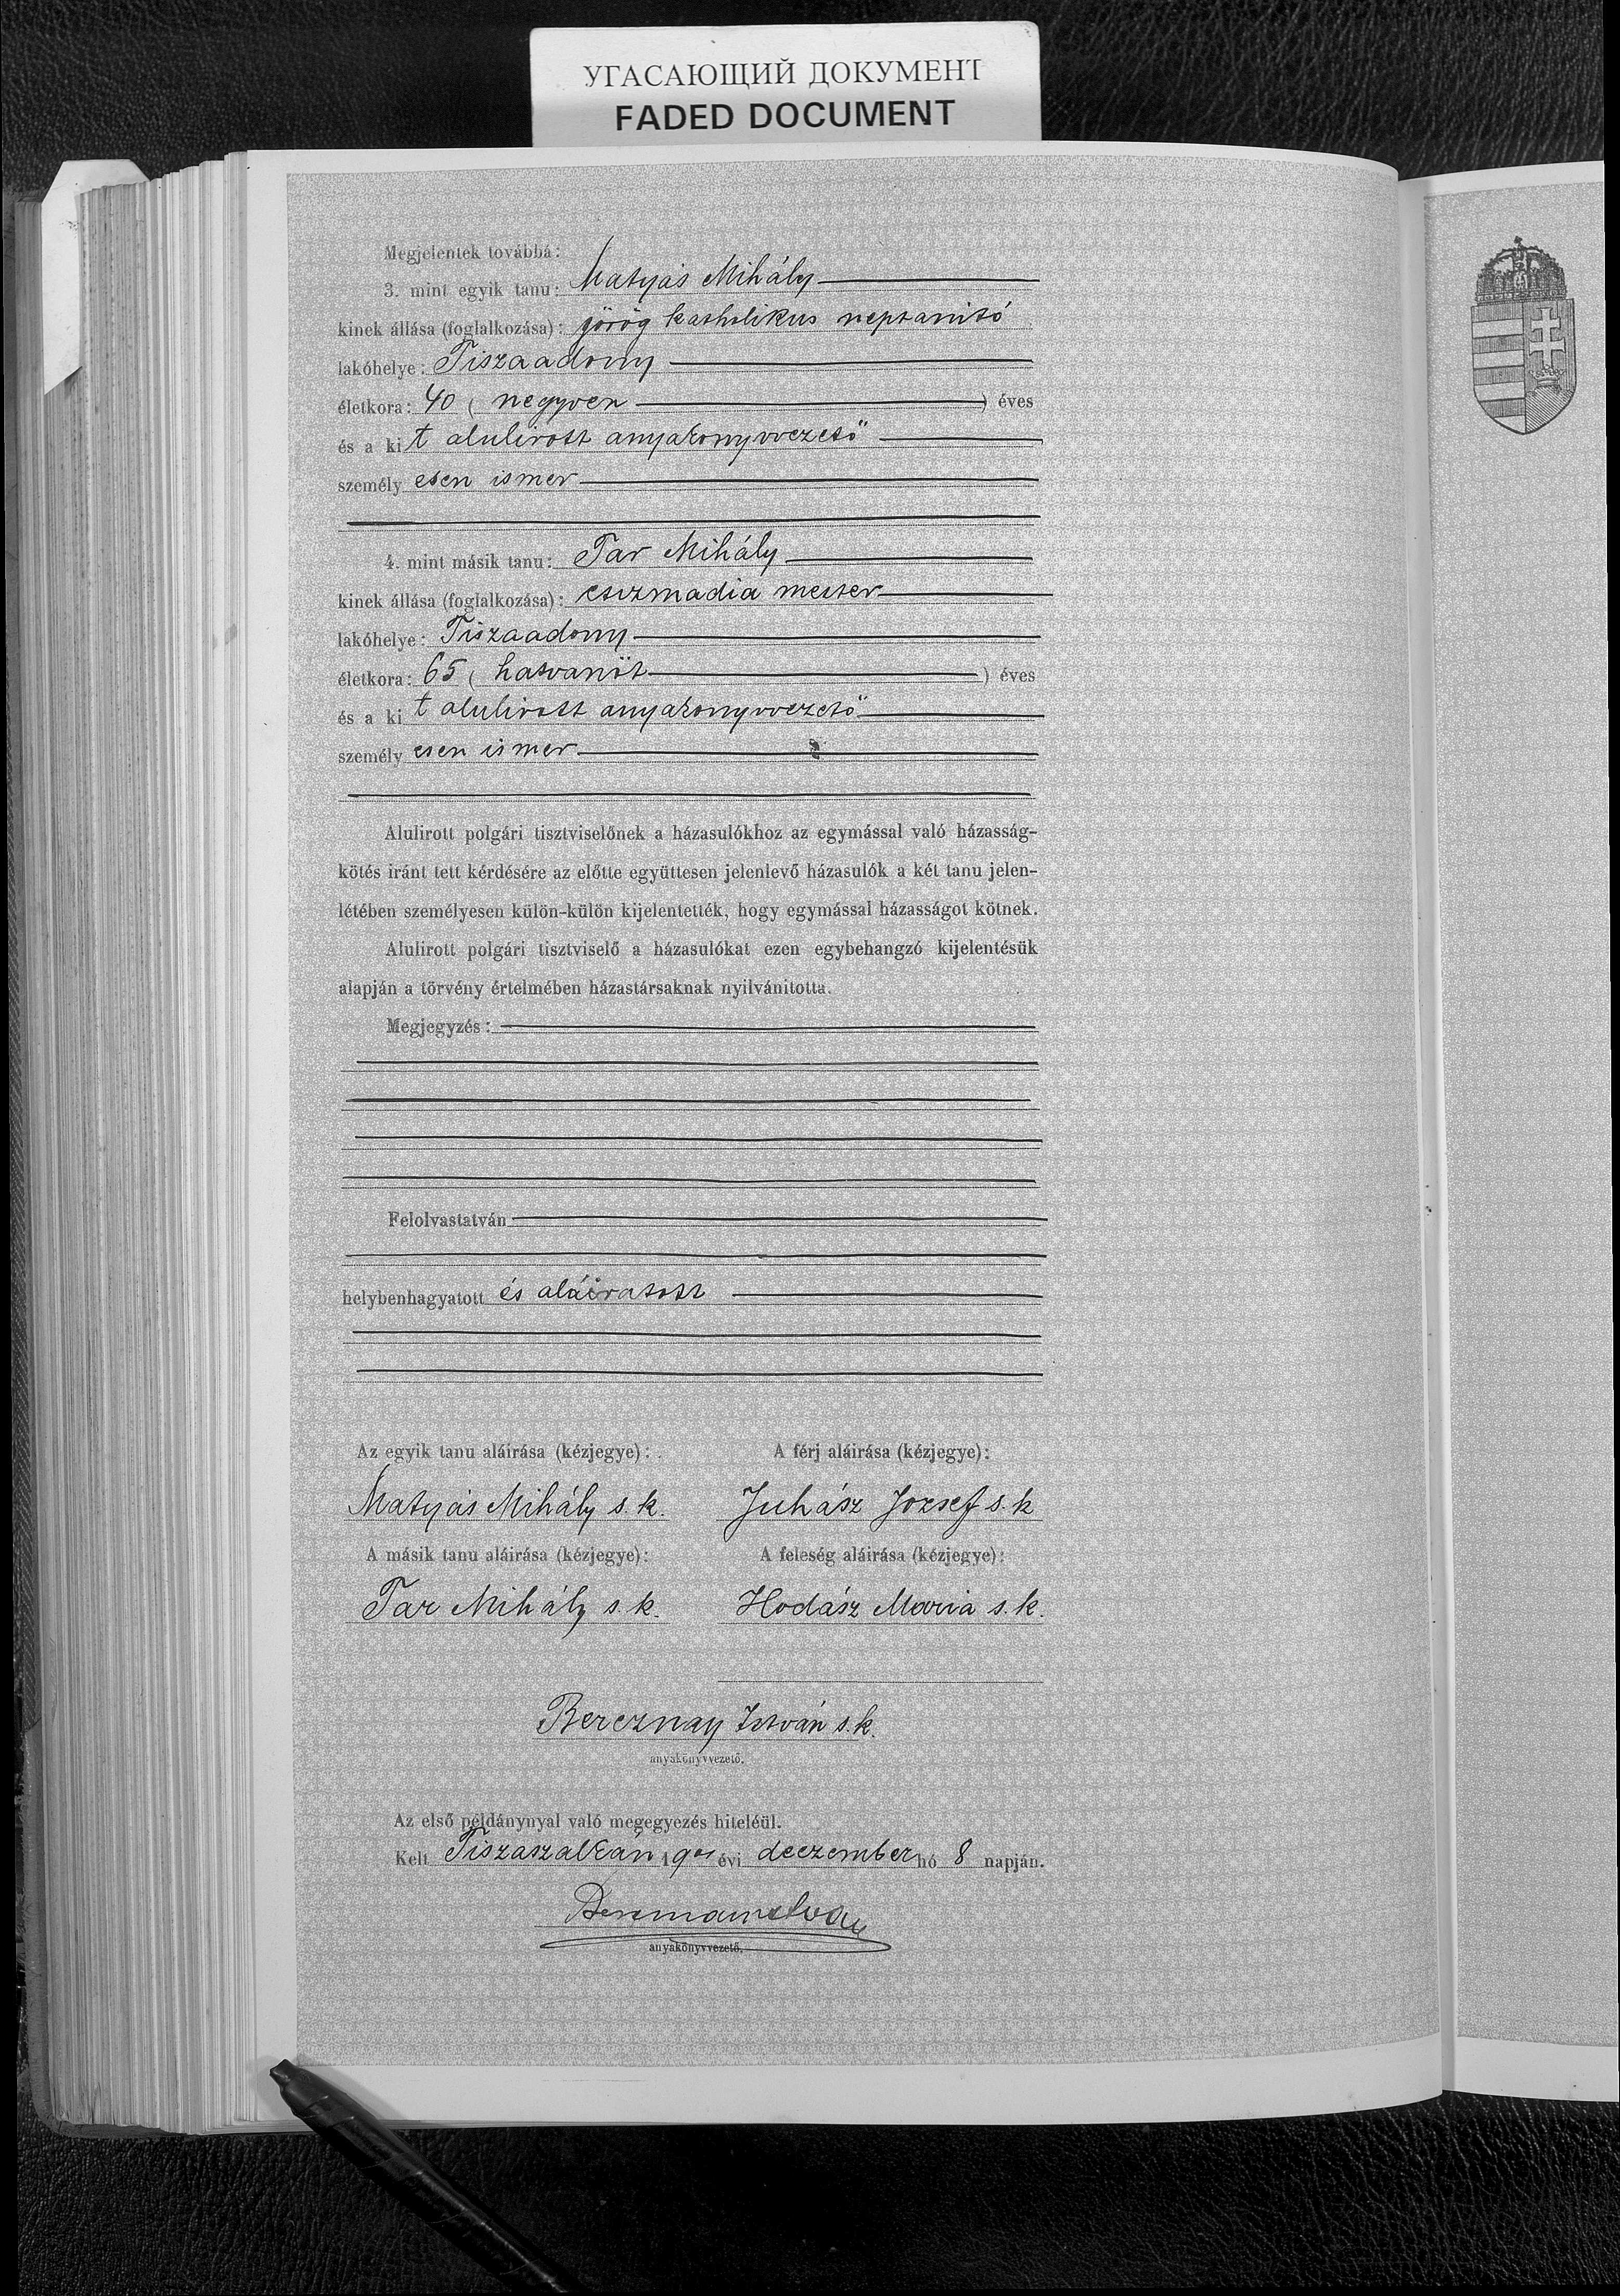 УГАСАЮЩИЙ ДОКУМЕНТ
FADED DOCUMENT
Megjelentek továbbá:
3. mint egyik tanu: Matyás Mihály
kinek állása (foglalkozása): görög katholikus neptanitó
lakóhelye: Tiszaadony
életkora: 40 (negyven) éves
és a kit alulirott anyakonyvvezető
személyesen ismer
4. mint másik tanu: Tar Mihály
kinek állása (foglalkozása): csizmadia mester
lakóhelye: Tiszaadony
életkora: 65 (hatvanöt) éves
és a kit alulirott anyakonyvvezető
személyesen ismer
Alulirott polgári tisztviselőnek a házasulókhoz az egymással való házasság-
kötés iránt tett kérdésére az előtte együttesen jelenlevő házasulók a két tanu jelen-
létében személyesen külön-külön kijelentették, hogy egymással házasságot kötnek.
Alulirott polgári tisztviselő a házasulókat ezen egybehangzó kijelentésük
alapján a törvény értelmében házastársaknak nyilvánitotta.
Megjegyzés:
Felolvastatván
helybenhagyatott és aláiratott
Az egyik tanu aláirása (kézjegye): A férj aláirása (kézjegye):
Matyás Mihály s. k. Juhász Jozsef s. k
A másik tanu aláirása (kézjegye): A feleség aláirása (kézjegye):
Tar Mihály s. k. Hodász Maria s. k.
Bereznay István s. k.
anyakönyvvezető.
Az első példánynyal való megegyezés hiteléül.
Kelt Tiszaszalkán 190 évi deczember hó 8 napján.
anyakönyvvezető.